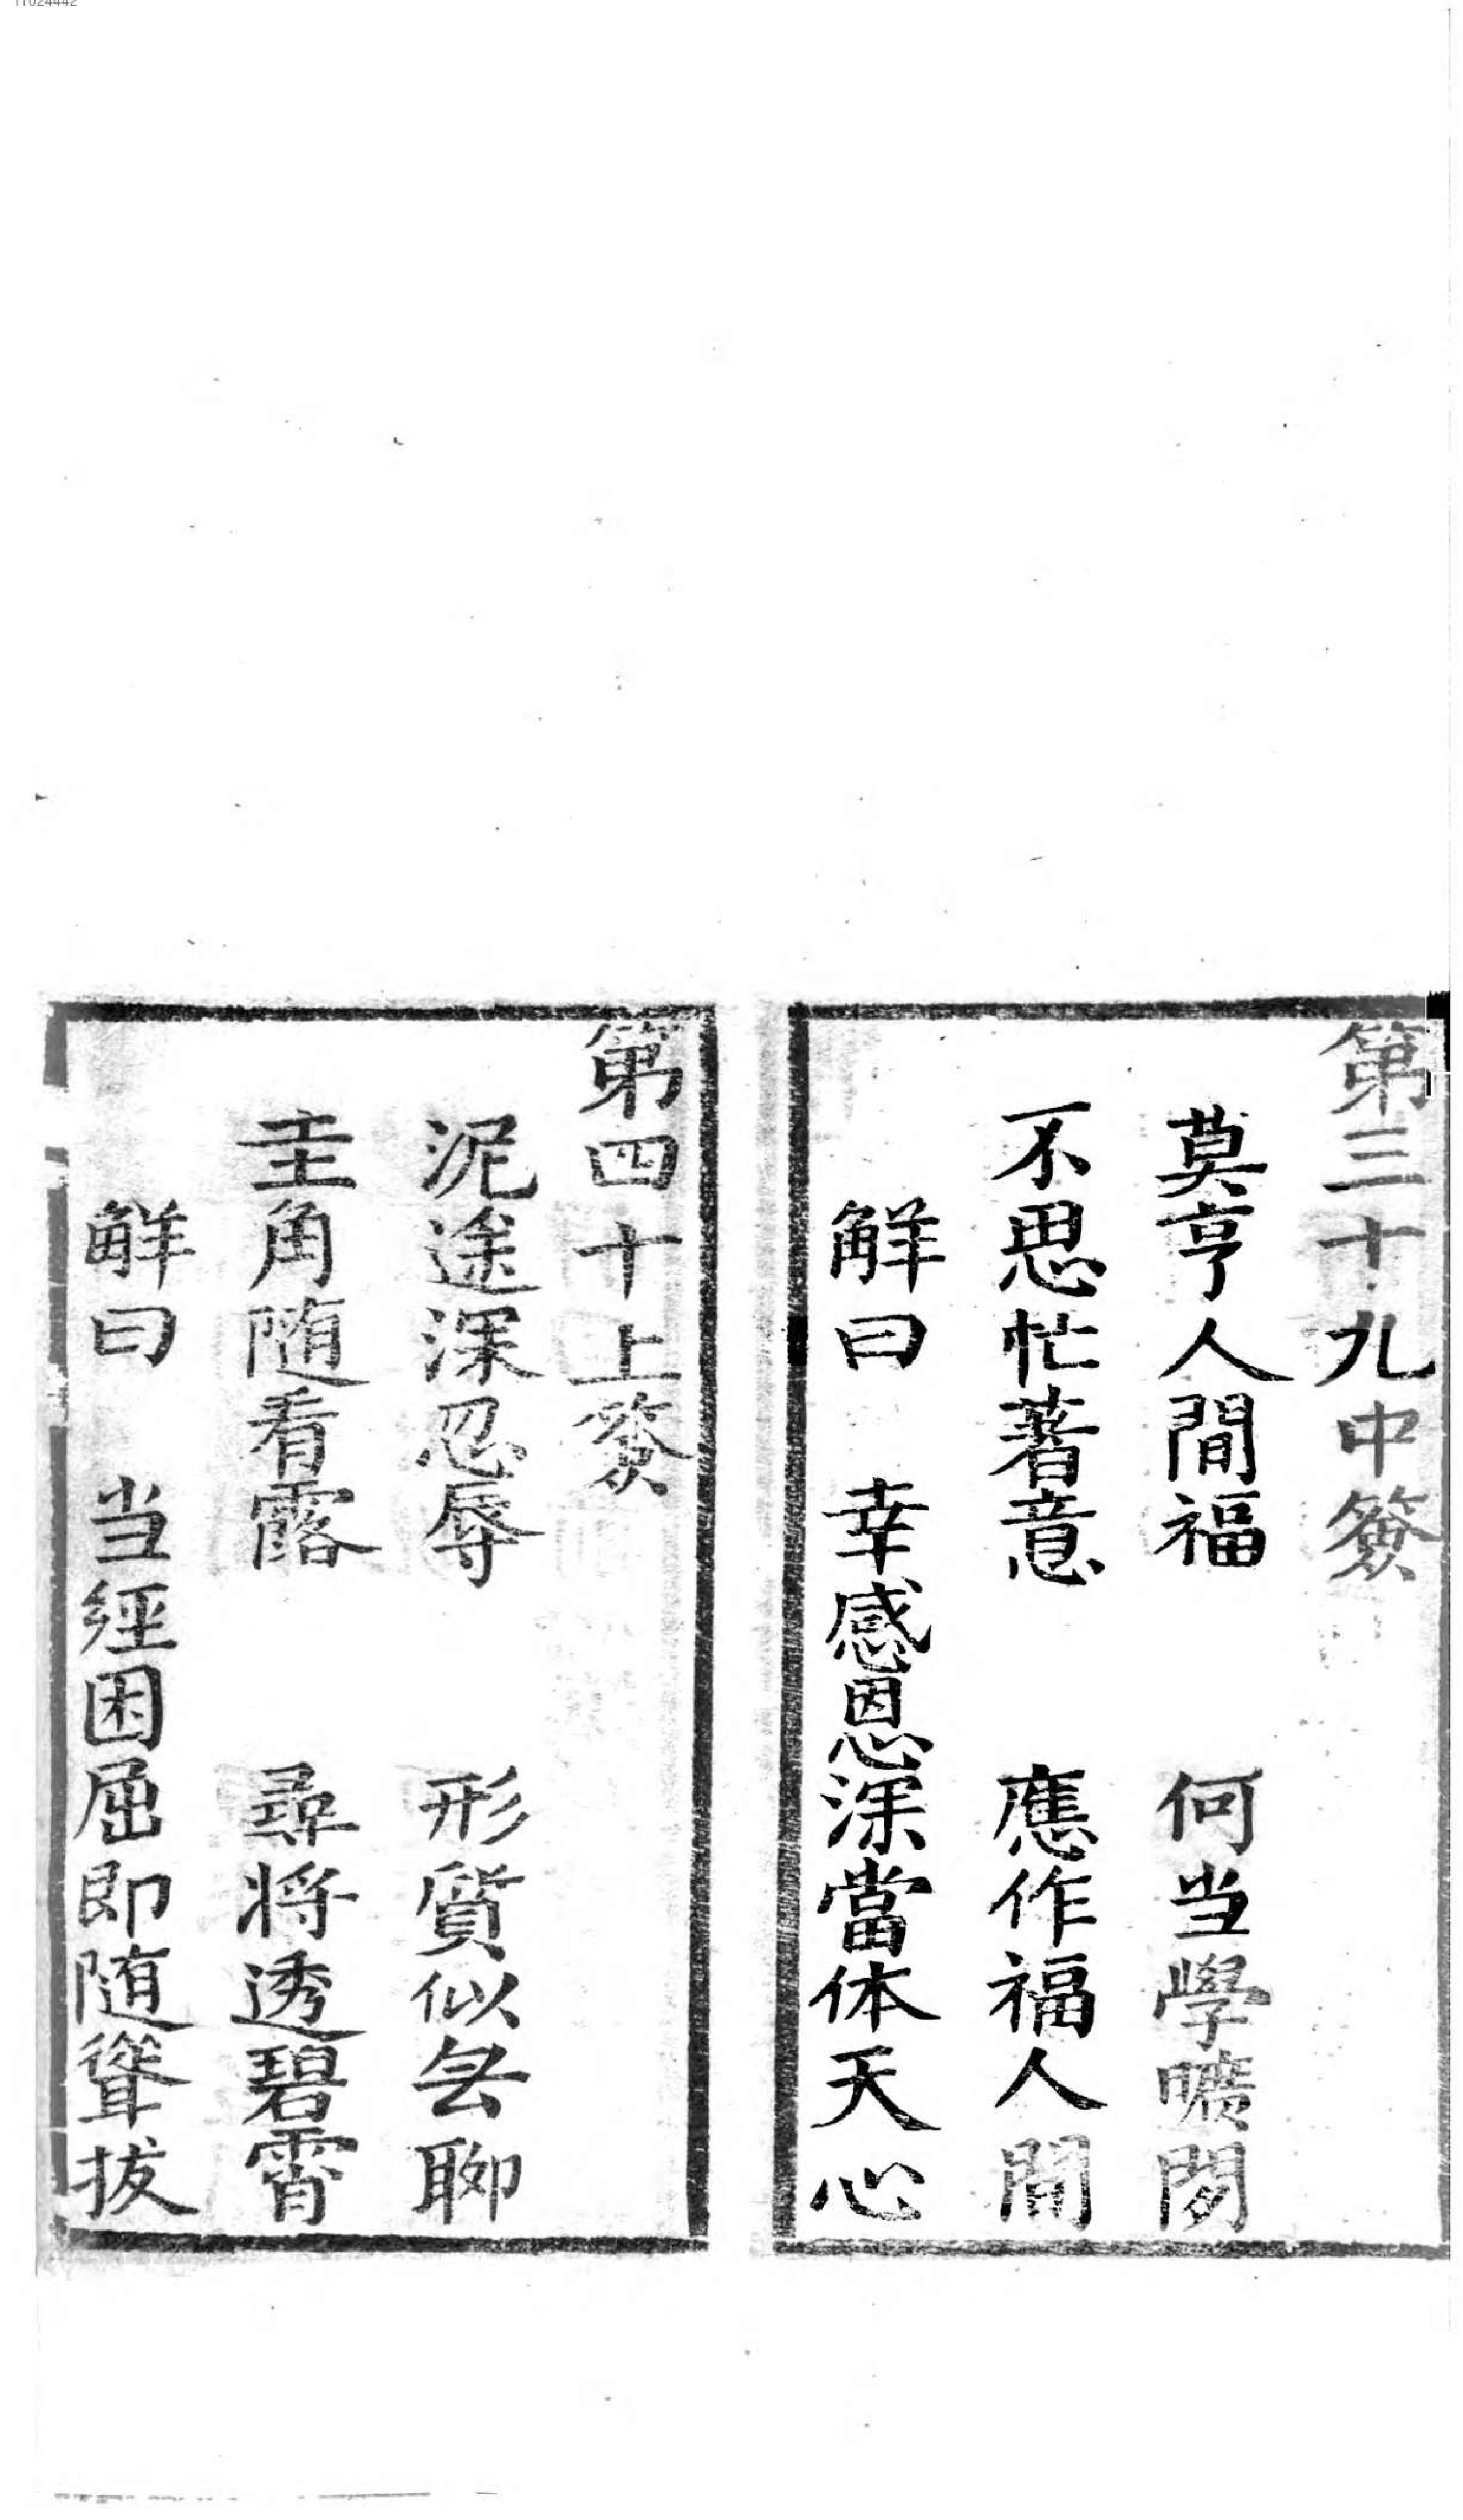 11024442
第三十九中簽
莫享人間福　何当學曠閑
不思忙著意　應作福人間
解曰　幸感恩深當体天心
第四十上簽
泥途深忍辱　形質似无聊
圭角随看露　尋将透碧霄
解曰　当經困屈即随聳拔